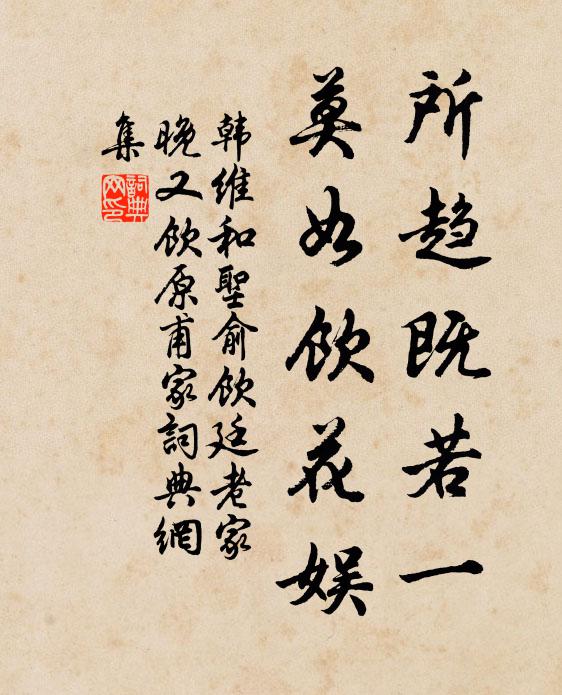 所趋既若一
莫如饮花娱
韩维和聖俞饮廷老家
晚又饮原甫家詞典網
集
詞典
网印